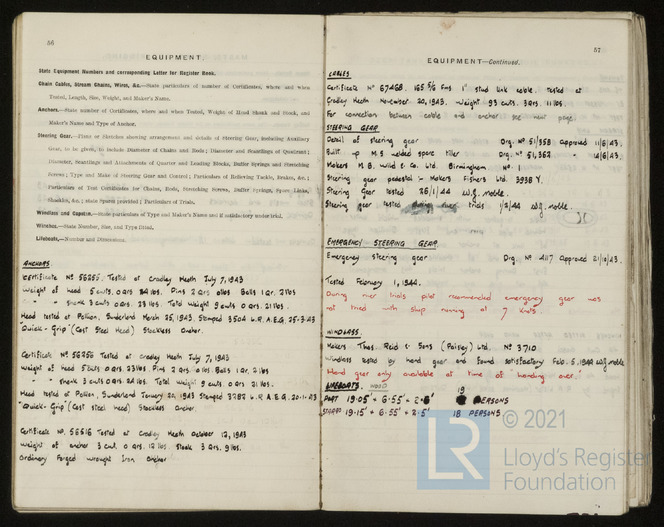 56
EQUIPMENT.
State Equipment Numbers and corresponding Letter for Register Book.
Chain Cables, Stream Chains, Wires, &c.—State particulars of number of Certificates, where and when
Tested, Length, Size, Weight, and Maker's Name.
Anchors.—State number of Certificates, where and when Tested, Weight of Head Shank and Stock, and
Maker's Name and Type of Anchor.
Steering Gear.—Plans or Sketches showing arrangement and details of Steering Gear, including Auxiliary
Gear, to be given, to include Diameter of Chains and Rods; Diameter and Scantlings of Quadrant;
Diameter, Scantlings and Attachments of Quarter and Leading Blocks, Buffer Springs and Stretching
Screws; Type and Make of Steering Gear and Control; Particulars of Relieving Tackle, Brakes, &c.;
Particulars of Test Certificates for Chains, Rods, Stretching Screws, Buffer Springs, Spare Links,
Shackles, &c.; state Spares provided; Particulars of Trials.
Windlass and Capstan.—State particulars of Type and Maker's Name and if satisfactory under trial.
Winches.—State Number, Size, and Type fitted.
Lifeboats.—Number and Dimensions.
ANCHORS.
Certificate No 56255. Tested at Cradley Heath July 7, 1943
Weight of head 5 cwts. 0 qrs 24 lbs. Pins 2 Qrs 0 lbs Balls 1 Qr. 2 lbs
" " shank 3 cwts 0 qrs. 23 lbs. Total Weight 9 cwts 0 qrs. 21 lbs.
Head tested at Pallion, Sunderland March 25, 1943. Stamped 3504 L.R. A.E.G. 25-3-43
"Quick-Grip" (Cast Steel Head) Stockless Anchor.
Certificate No 56256 Tested at Cradley Heath July 7, 1943
Weight of head 5 cwts 0 qrs. 23 lbs Pins 2 qrs. 0 lbs. Balls 1 qr. 2 lbs
" " shank 3 cwts 0 qrs 24 lbs. Total weight 9 cwts 0 qrs. 21 lbs.
Head tested at Pallion, Sunderland January 20, 1943 Stamped 3282 L.R. A.E.G. 20-1-43
"Quick-Grip" (Cast steel head) Stockless Anchor.
Certificate No. 56616 Tested at Cradley Heath October 12, 1943
Weight of anchor 3 cwt. 0 qrs. 12 lbs Stock 3 Qrs. 9 lbs.
Ordinary Forged wrought Iron Anchor
57
EQUIPMENT—Continued.
CABLES
Certificate No 67468. 165 5/6 Fms 1" stud link cable. Tested at
Cradley Heath November 20, 1943. Weight 93 cwts. 3 qrs. 11 lbs.
For connection between cable and anchor see next page.
STEERING GEAR
Detail of steering gear Drg. No 51/358 Approved 11/6/43.
Built up M.S. welded spare tiller Drg. No 51,362 " 14/6/43.
Makers M.B. Wild & Co. Ltd. Birmingham No 1
Steering gear pedestal :- Makers Fishers Ltd. 3938 Y.
Steering Gear tested 26/1/44 W.G. Moble.
Steering gear tested during river trials 1/2/44 W.G. Moble.
EMERGENCY STEERING GEAR
Emergency steering gear Drg. No 4117 Approved 21/10/43.
Tested February 1, 1944.
During river trials pilot recommended emergency gear was
not tried with ship running at 7 knots.
WINDLASS.
Makers. Thos. Reid & Sons (Paisley) Ltd. No 3710
Windlass tested by hand gear and found satisfactory Feb. 5, 1944 W.G. Moble
Hand gear only available at time of "handing over".
LIFEBOATS. WOOD
PORT 19·05' × 6·55' × 2·6' 19 PERSONS
STARBD 19·15' × 6·55' × 2·5' 18 PERSONS
© 2021
LR
Lloyd's Register
Foundation